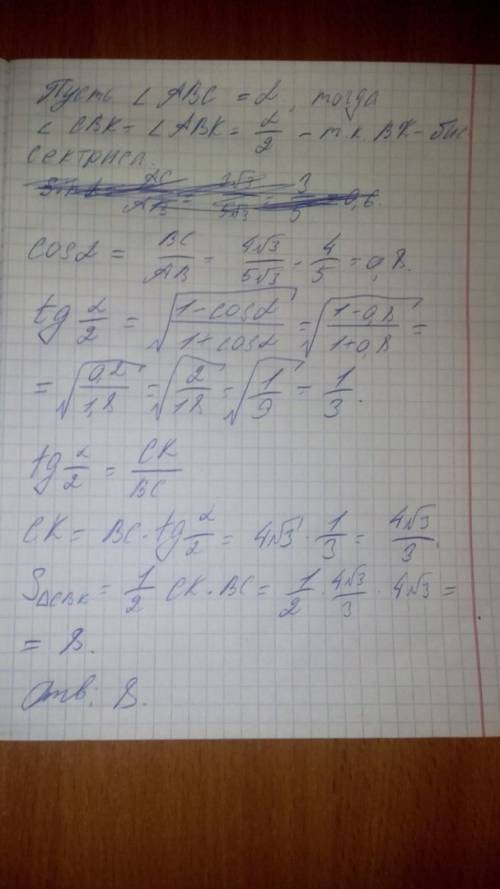 Пусть ∠ ABC = α, тогда
∠ CBK = ∠ ABK = α/2 - т.к. BK - бис
сектриса.
sin α = AC/AB = 3√3/5√3 = 3/5 = 0,6.
cos α = BC/AB = 4√3/5√3 = 4/5 = 0,8.
tg α/2 = √((1-cosα)/(1+cosα)) = √((1-0,8)/(1+0,8)) =
= √(0,2/1,8) = √(2/18) = √(1/9) = 1/3.
tg α/2 = CK/BC
CK = BC · tg α/2 = 4√3 · 1/3 = 4√3/3.
S△CBK = 1/2 CK · BC = 1/2 · 4√3/3 · 4√3 =
= 8.
Отв: 8.